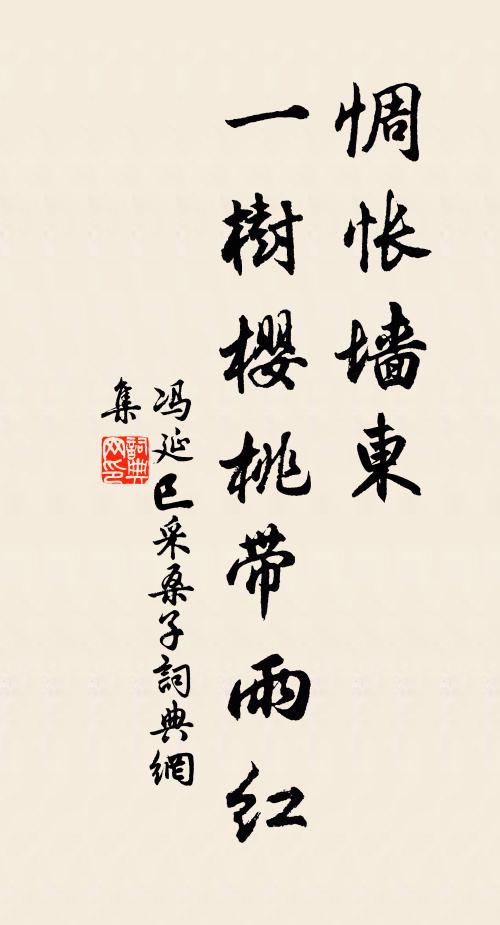 惆怅墙東
一樹櫻桃带雨红
冯延巳采桑子詞典網
集
詞典
网印